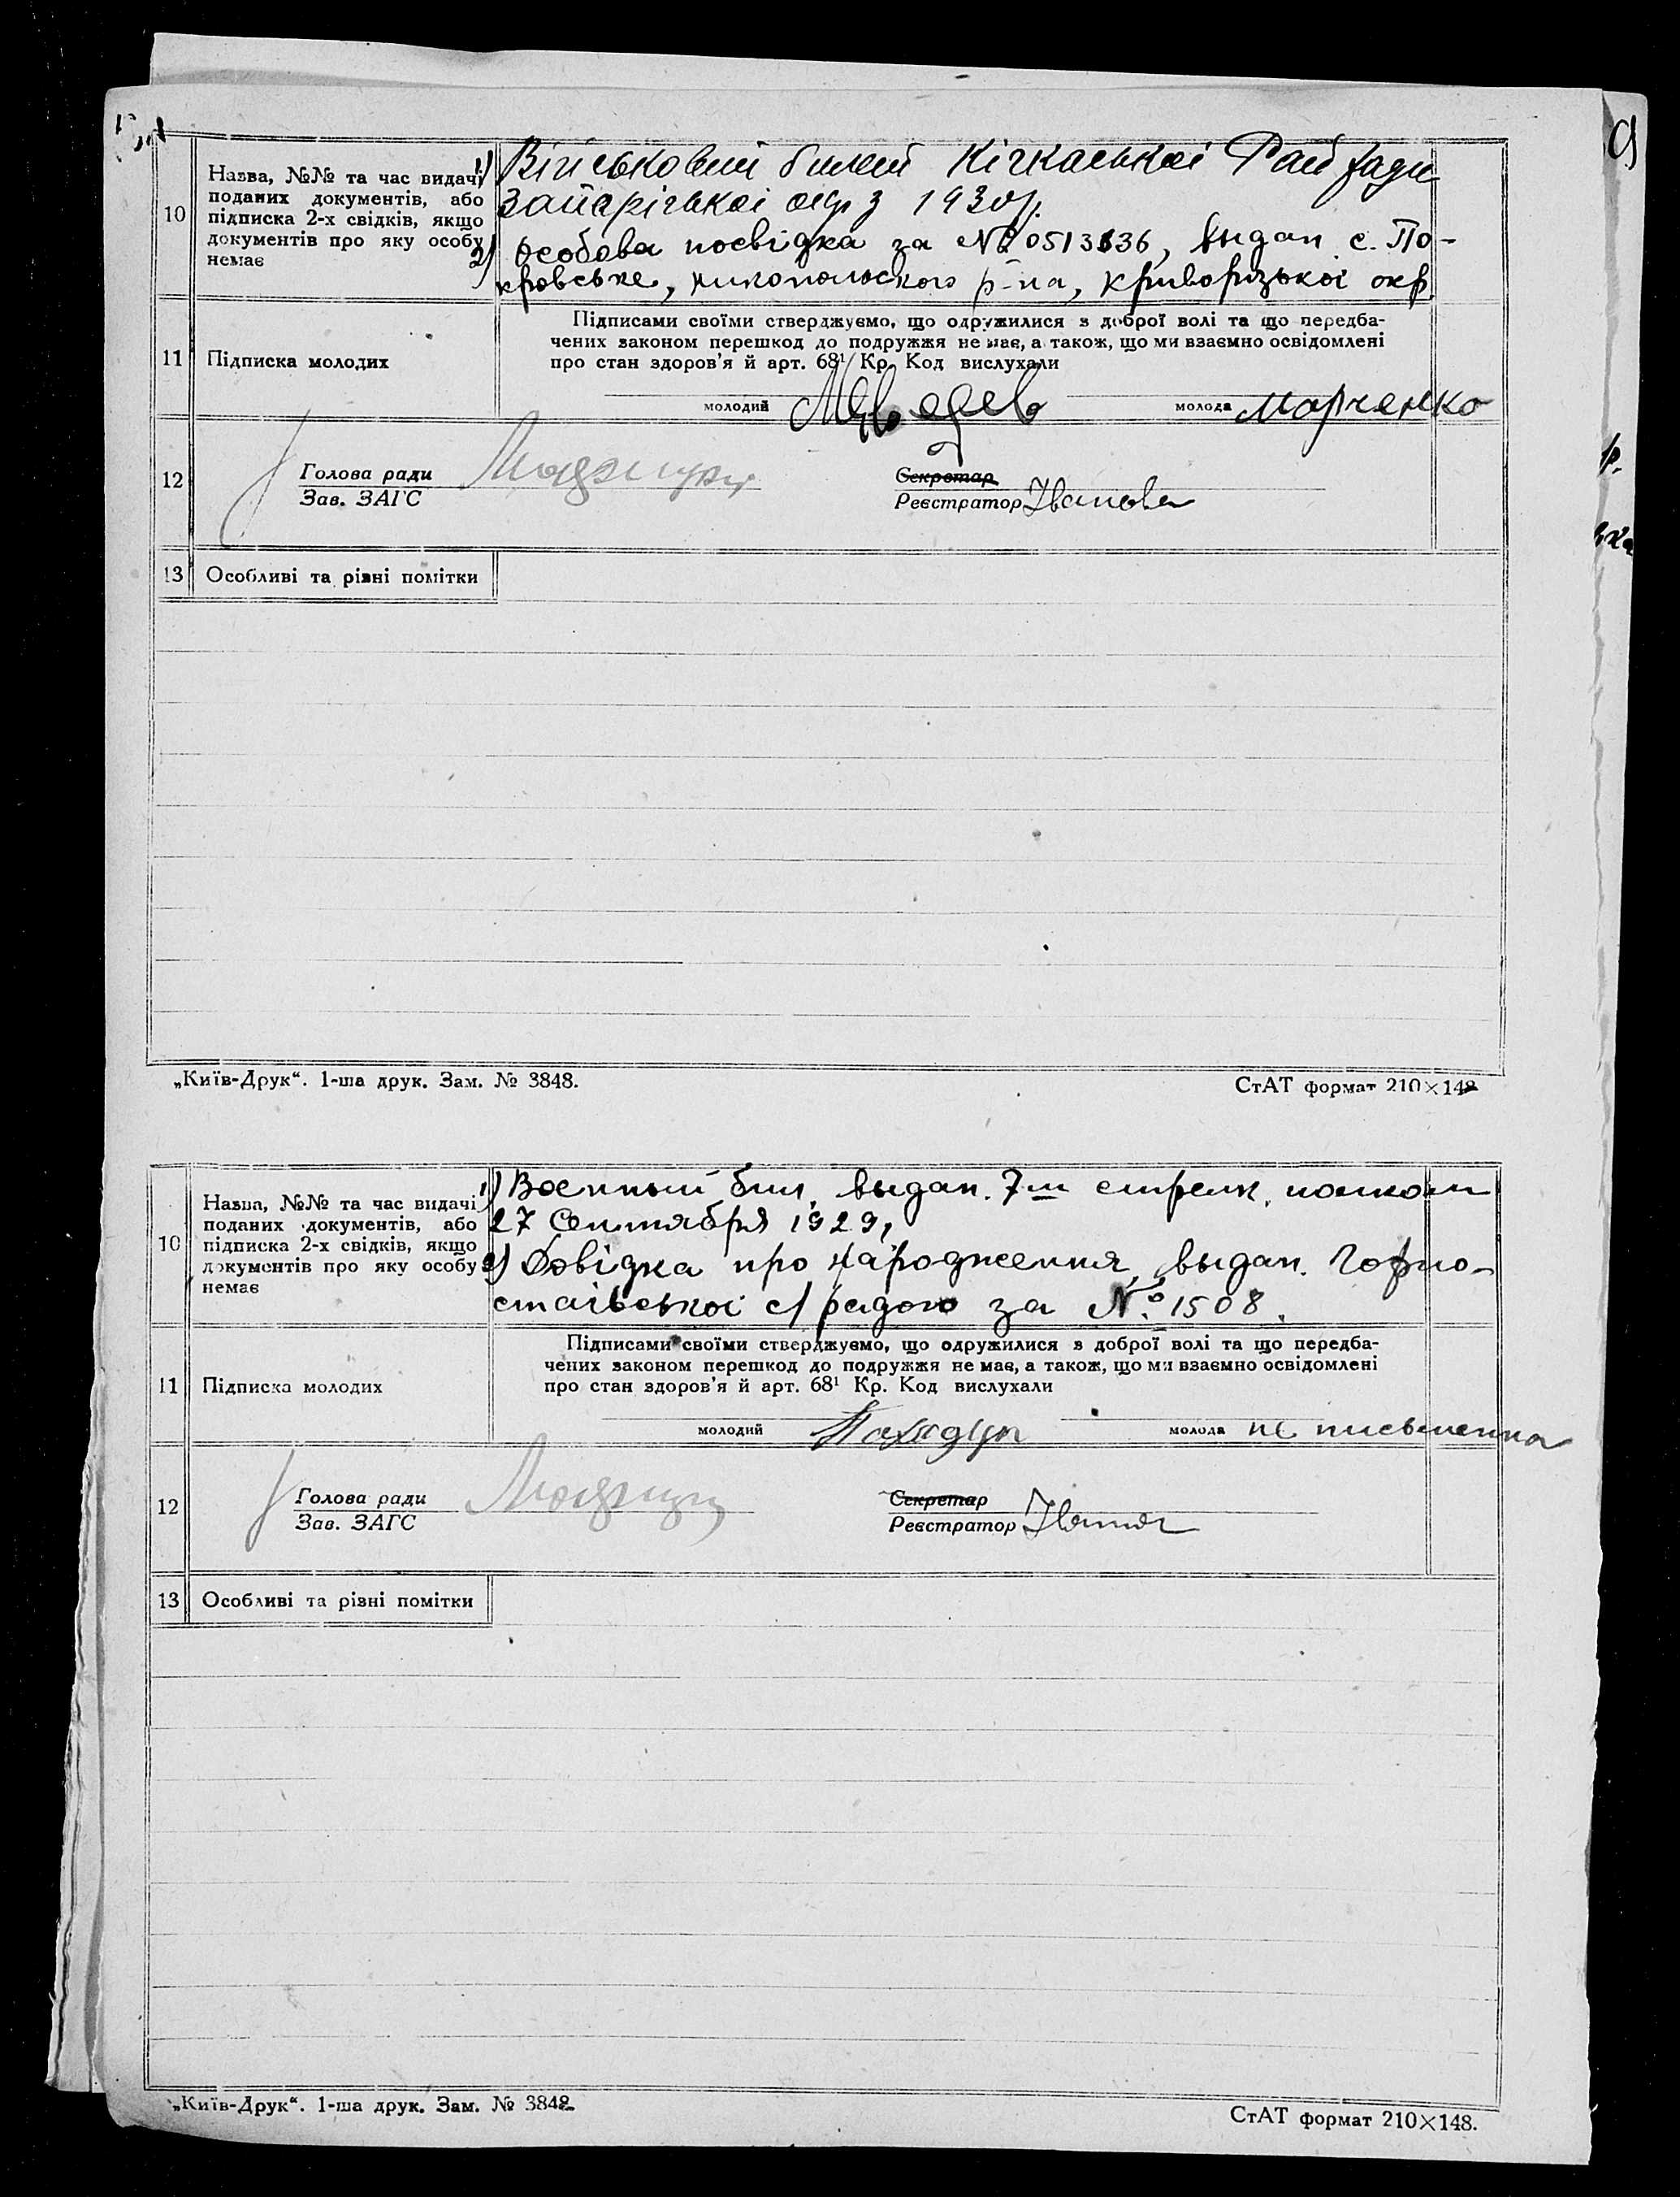 10
Назва, №№ та час видачі
поданих документів, або
підписка 2-х свідків, якщо
документів про яку особу
немає
1) Військовий билет Кічкаської Рай ради
Запарізької окр з 1930 р.
2) Особова посвідка за № 0513636, выдан с. По-
кровське, никопольского р-на, криворізької окр
11
Підписка молодих
Підписами своїми стверджуємо, що одружилися з доброї волі та що передба-
чених законом перешкод до подружжя не має, а також, що ми взаємно освідомлені
про стан здоров'я й арт. 68¹ Кр. Код вислухали
молодий Медведев молода Марченко
12
Голова ради
Зав. ЗАГС
Секретар
Реєстратор Иванова
13 Особливі та різні помітки
„Київ-Друк“. 1-ша друк. Зам. № 3848.
СтАТ формат 210×148
10
Назва, №№ та час видачі
поданих документів, або
підписка 2-х свідків, якщо
документів про яку особу
немає
1) Военный бил. выдан. 7м стрелк. полком
27 Сентября 1929,
2) Довідка про народження, выдан. Горно-
стаівської с/радою за № 1508.
11
Підписка молодих
Підписами своїми стверджуємо, що одружилися з доброї волі та що передба-
чених законом перешкод до подружжя не має, а також, що ми взаємно освідомлені
про стан здоров'я й арт. 68¹ Кр. Код вислухали
молодий молода не письменна
12
Голова ради
Зав. ЗАГС
Секретар
Реєстратор
13 Особливі та різні помітки
„Київ-Друк“. 1-ша друк. Зам. № 3848.
СтАТ формат 210×148.